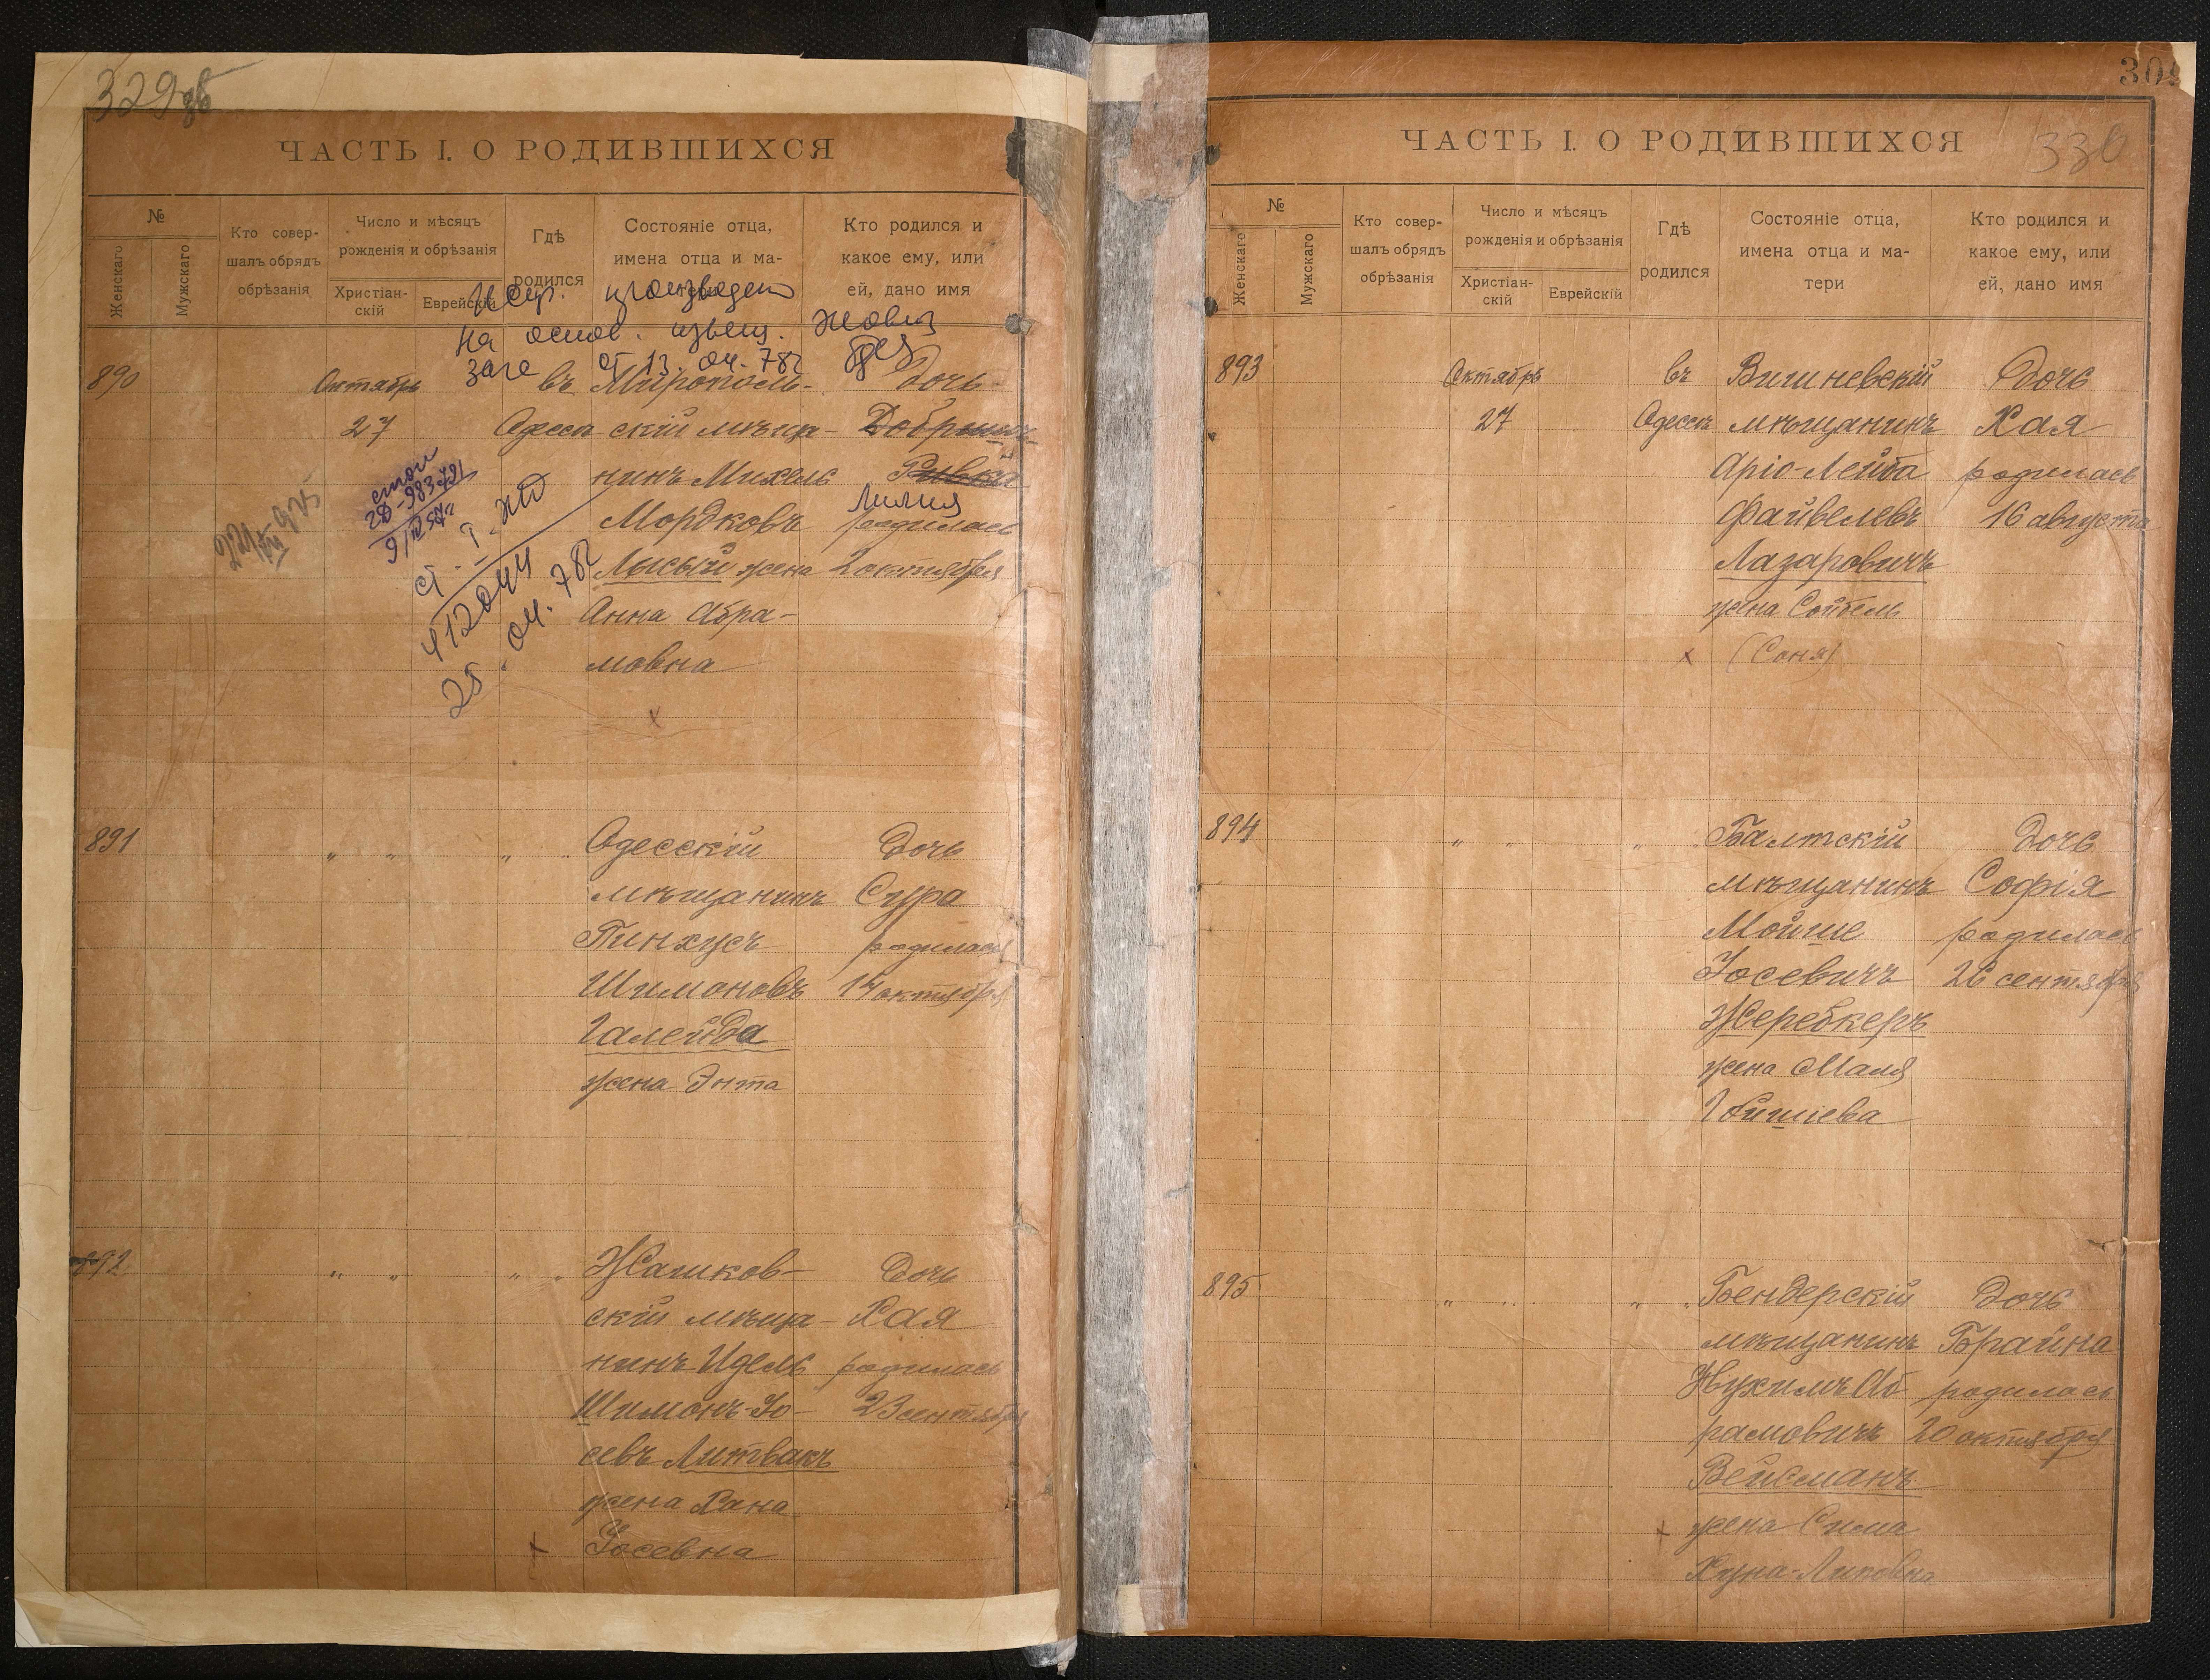 329 об
ЧАСТЬ I. О РОДИВШИХСЯ
№
Женскаго
Мужскаго
Кто совер-
шалъ обрядъ
обрѣзанія
Число и мѣсяцъ
рожденія и обрѣзанія
Христіан-
скій
Еврейскій
Гдѣ
родился
Состояніе отца,
имена отца и ма-
Кто родился и
какое ему, или
ей, дано имя
произведено
на основ. извещ.
от 13. 04. 78г
890
Октябрь
27
въ
Одессѣ
Мирополь-
скій мѣща-
нинъ Михель
Мордковъ
Лысый жена
Анна Абра-
мовна
Дочь
Ривка
Лилия
родилась
2 октября
412044
25. 04. 78г
891
" "
" "
Одесскій
мѣщанинъ
Пинхусъ
Шимоновъ
Галейда
жена Энта
Дочь
Сура
родилась
14 октября
892
" "
" "
Жашков-
скій мѣща-
нинъ Идель
Шимонъ-Іо-
севъ Литвакъ
жена Хана
Іосевна
Дочь
Хая
родилась
23 сентября
330
ЧАСТЬ I. О РОДИВШИХСЯ
№
Женскаго
Мужскаго
Кто совер-
шалъ обрядъ
обрѣзанія
Число и мѣсяцъ
рожденія и обрѣзанія
Христіан-
скій
Еврейскій
Гдѣ
родился
Состояніе отца,
имена отца и ма-
тери
Кто родился и
какое ему, или
ей, дано имя
893
Октябрь
27
въ
Одессѣ
Вишневскій
мѣщанинъ
Аріо-Лейба
Файвелевъ
Лазаровичъ
жена Сойбель
(Соня)
Дочь
Хая
родилась
16 августа
894
" "
" "
Балтскій
мѣщанинъ
Мойше
Іосевичъ
Жеребкеръ
жена Маля
Дочь
Софія
родилась
26 сентября
895
" "
" "
Бендерскій
мѣщанинъ
Нухимъ Аб-
рамовичъ
Вейсманъ
жена Сима
Дочь
Брайна
родилась
20 октября